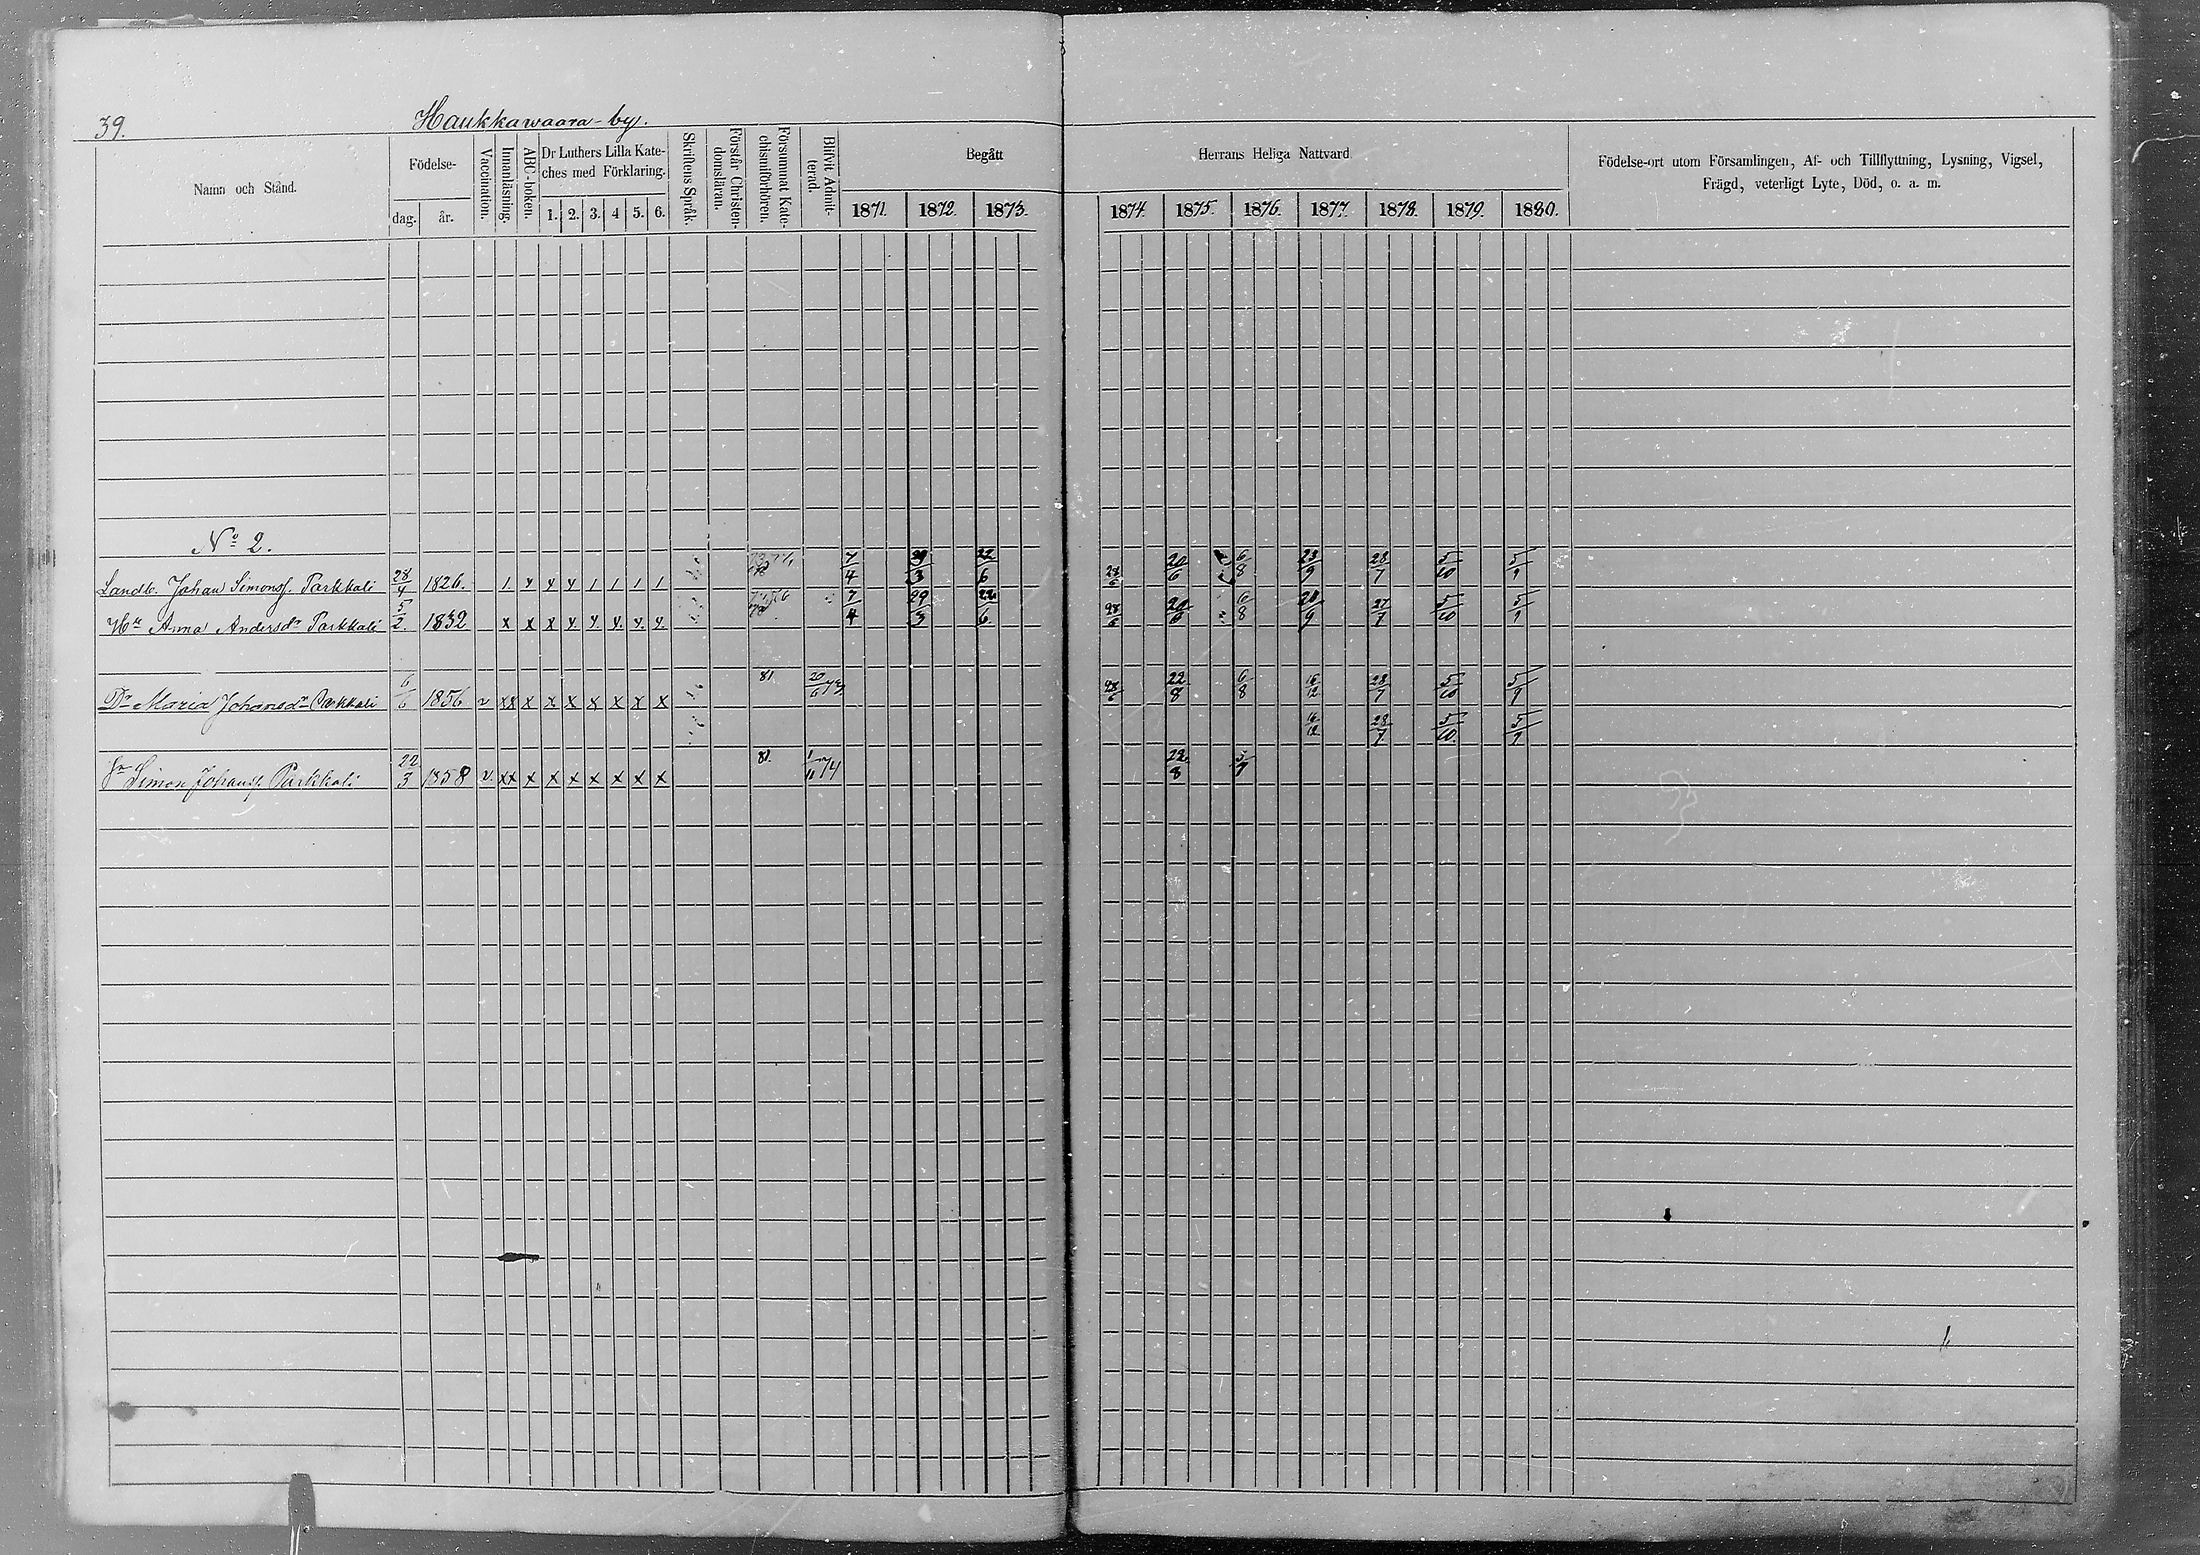 39. Haukkawaara-by.
Namn och Stånd.
Födelse-
dag. år.
Vaccination.
Innanläsning.
ABC-boken.
Dr Luthers Lilla Kate-
ches med Förklaring.
1. 2. 3. 4 5. 6.
Skriftens Språk.
Förstår Christen-
domsläran.
Försummat Kate-
chismiförhören.
Blifvit Admit-
terad.
Begått Herrans Heliga Nattvard
1871. 1872. 1873. 1874. 1875. 1876. 1877. 1878. 1879. 1880.
Födelse-ort utom Församlingen, Af- och Tillflyttning, Lysning, Vigsel,
Frägd, veterligt Lyte, Död, o. a. m.
No 2.
Landb. Johan Simonsf. Parkkali 28/4 1826. 1 x x x 1 1 1 1 7/4 /3 22/6 28/6 20/6 6/8 23/9 28/7 5/10 5/9
Hu Anna Andersdr Parkkali 5/2. 1832 x x x x. x. x. x. x. 7/4 29/3 22/6 28/6 20/6 6/8 /9 27/7 5/10 5/9
Dr Maria Johansdr Parkkali 6/6 1856 v xx x x x x x x x 81 20/6 73 28/6 22/8 6/8 16/12 28/7 5/10 5/9
16/12 28/7 5/10. 5/9
Sn Simon Johansf. Parkkali 22/3 1858 v. xx x x x x x x x 81. 1/11 74 22/8 5/9